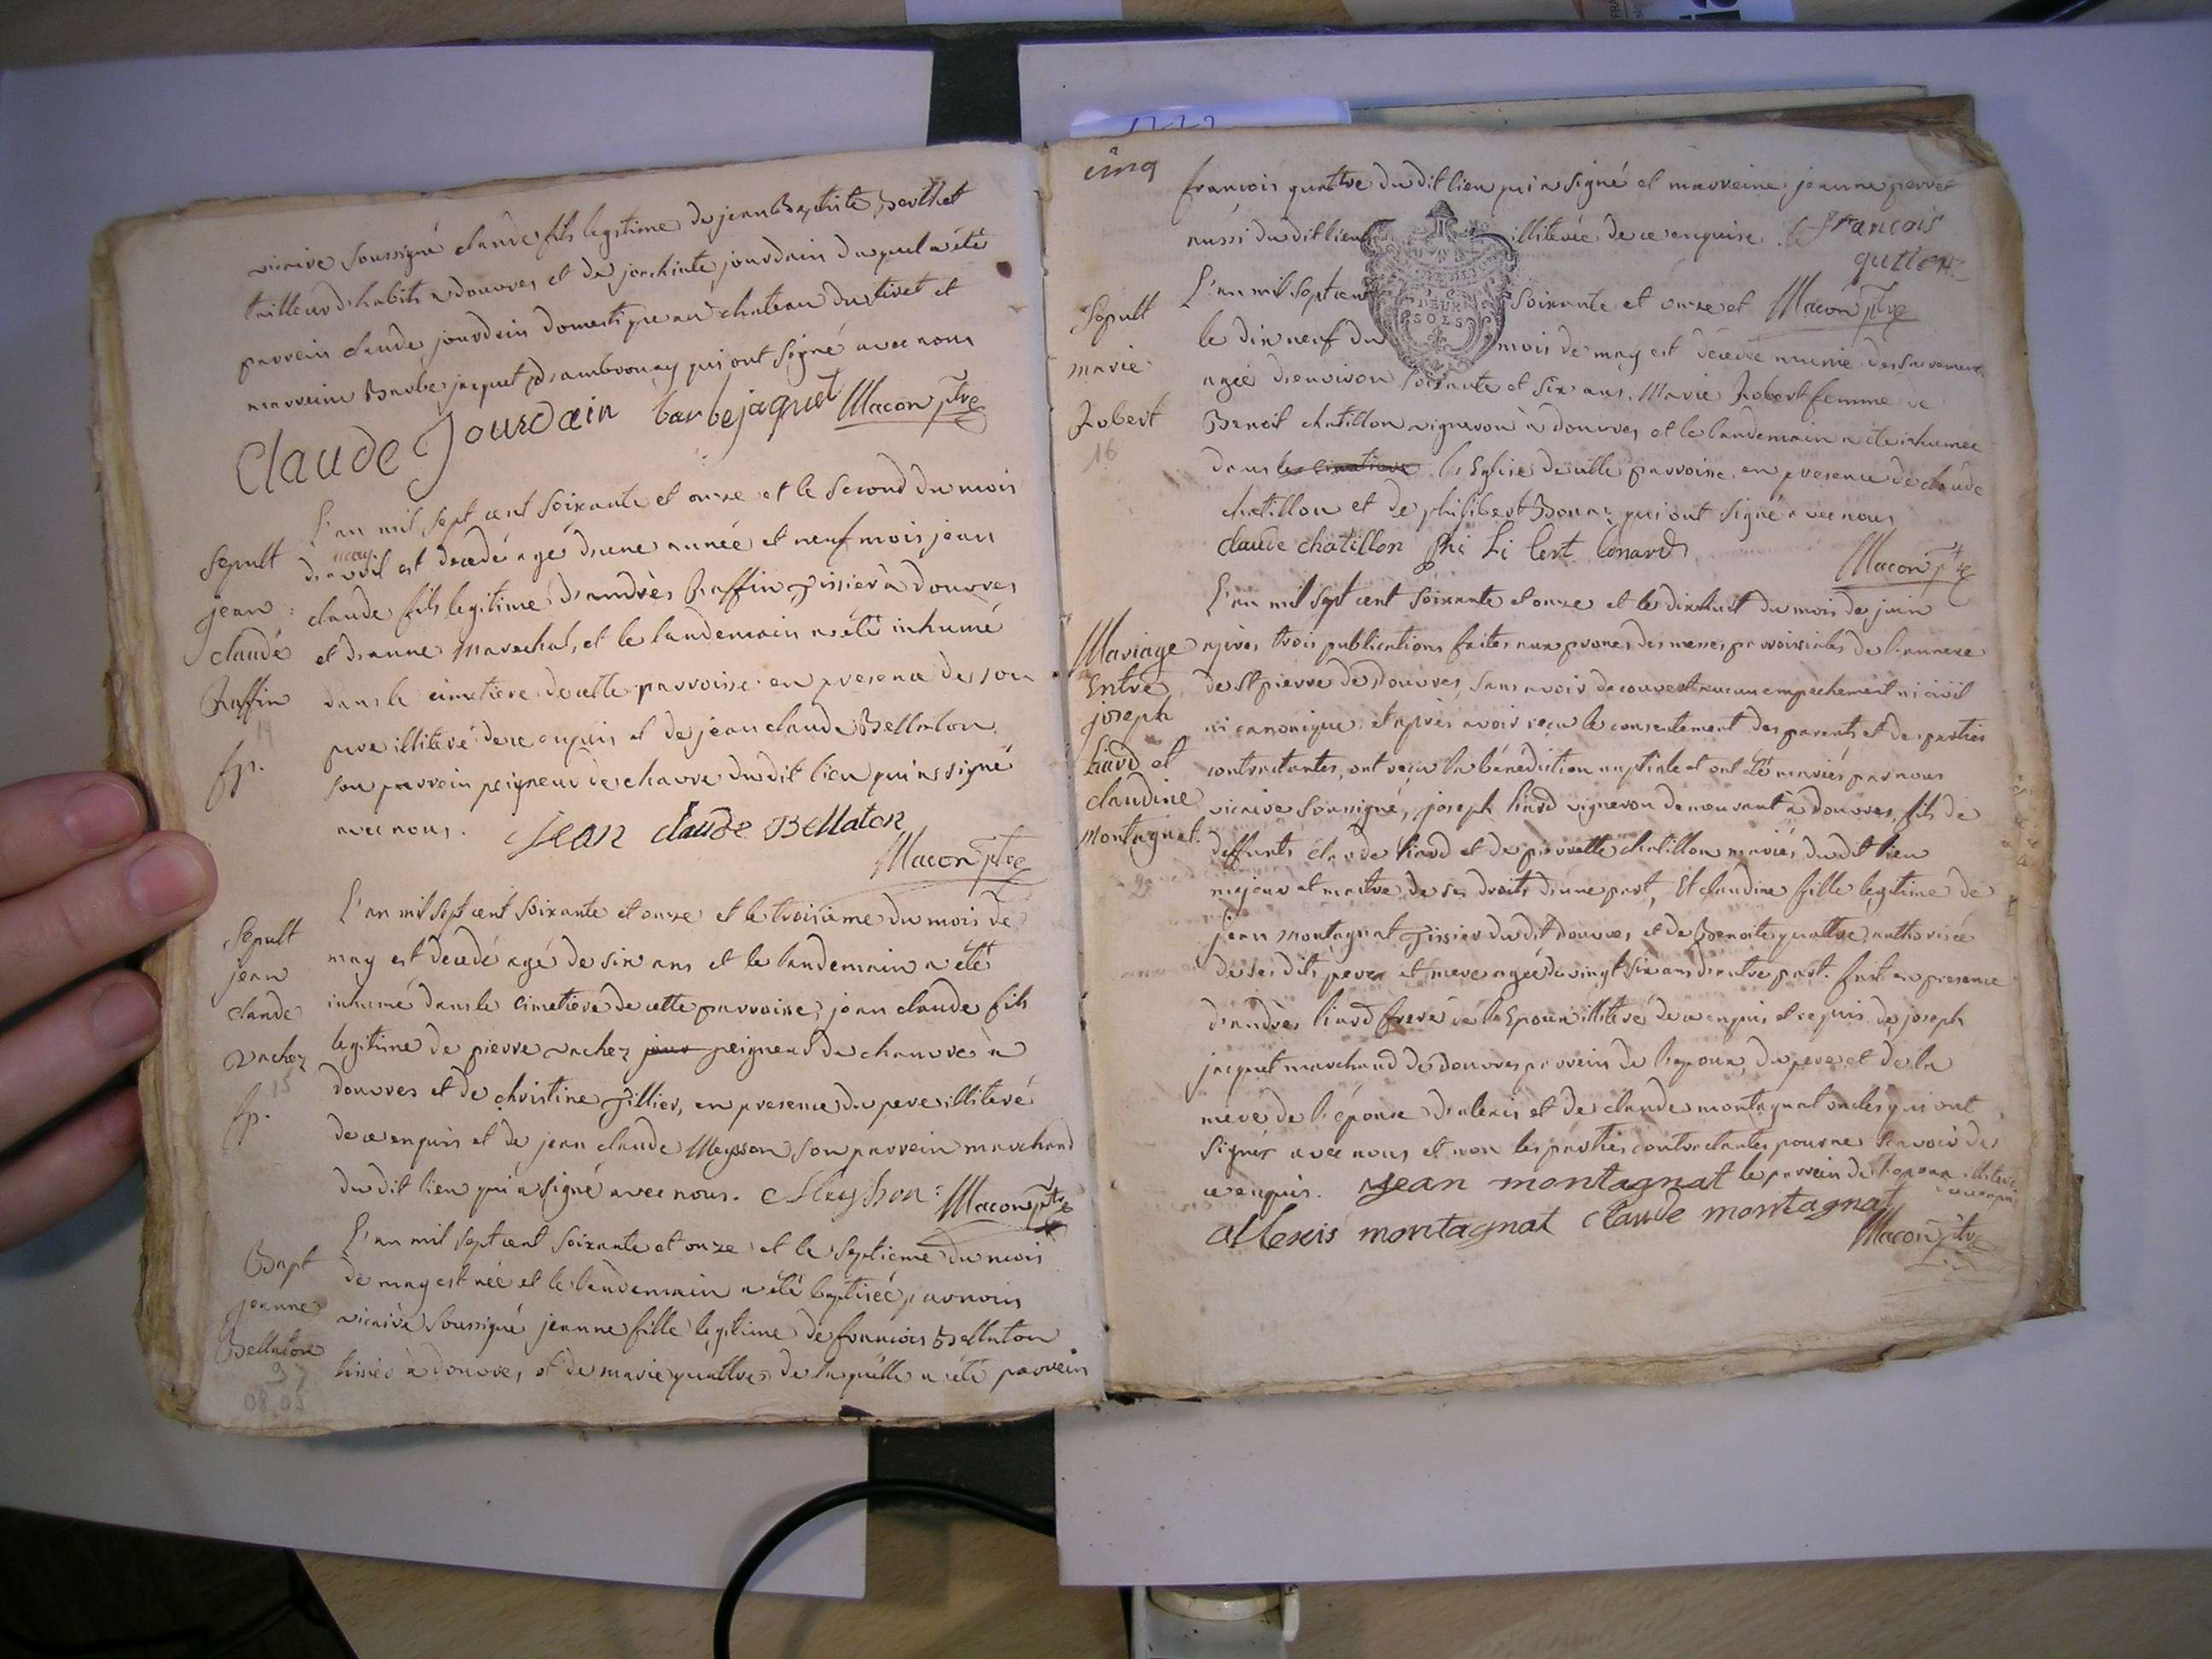 vicaire soussigné claude fils legitime de jean Baptiste Berthet
tailleur d'habits a douvres et de jourdain duquel a été
parrein claude jourdain domestique au chateau du tiret et
marreine Barbe jaquet d'ambronay qui ont signé avec nous
Claude Jourdain barbe jaquet Macon ptre
Sepult
jean
claude
Raffin
14
fp.
L'an mil sept cent soixante et onze et le second du mois
may
d'avril est decedé agé d'une année et neuf mois jean
claude fils legitime d'andrès Raffin Tissier à douvres
et d'anne Marechal, et le landemain a été inhumé
dans le cimetiere de cette parroisse en presence de son
pere illiteré de ce enquis et de jean claude Bellaton
son parrein peigneur de chanvre dudit lieu qui a signé
avec nous. Jean claude Bellaton
Macon ptre
Sepult
jean
claude
vachez
15
fp.
L'an mil sept cent soixante et onze et le troisieme du mois de
may est decedé agé de six ans et le landemain a été
inhumé dans le cimetiere de cette parroisse, jean claude fils
legitime de pierre vachez peigneur de chanvre à
douvres et de christine Tillier, en presence du pere illiteré
de ce enquis et de jean claude Meysson son parrein marchand
du dit lieu qui à signé avec nous. Meysson Macon ptre
Bapt
jeanne
Bellaton
L'an mil sept cent soixante et onze et le septieme du mois
de may est née et le landemain a été baptisée par nous
vicaire soussigné jeanne fille legitime de francois Bellaton
tissier à douvres, et de marie quattre de laquelle a été parrein
cinq
francois quattre dudit lieu qui a signé et marreine jeanne perret
aussi dudit lieu illiterée de ce enquise. francois
guttier
Sepult
marie
Robert
16
L'an mil sept cent soixante et onze et Macon ptre
le dix neuf du mois de may est décédée munie des sacrements
agée d'environ soixante et six ans, Marie Robert femme de
Benoit chatillon vigneron à douvres et le landemain a été inhumée
dans les cimetiere l'Eglise de cette parroisse en presence de claude
chatillon et de philibert qui ont signé avec nous
claude chatillon phi Li bert bonard
Macon ptre
Mariage
Entre
joseph
liard et
claudine
Montagnat.
L'an mil sept cent soixante et onze et le dixhuit du mois de juin
apres trois publications faites aux prones des messes parroissiales de l'annexe
de St pierre de douvres, sans avoir decouvert aucun empechement ni civil
ni canonique, et après avoir reçu le consentement des parents et des parties
contractantes, ont reçu la bénédiction nuptiale et ont été mariés par nous
vicaire soussigné, joseph liard vigneron demeurant à douvres, fils de
deffunts claude liard et de pierrette chatillon mariés dudit lieu
majeur et maitre de ses droits d'une part, Et claudine fille legitime de
jean montagnat Tissier dudit douvres et de Benoite quattre, authorisée
de ses dits pere et mere agée de vingt six ans d'autre part. fait en presence
d'andrès liard frere de l'Epoux illiteré de ce enquis et requis de joseph
jaquet marchand de douvres parrein de l'epoux, du pere et de la
mere de l'épouse d'alexis et de claude montagnat oncles qui ont
signés avec nous et non les parties contractantes pour ne scavoir de
ce enquis. jean montagnat le parrein de l'epoux illiteré
de ce enquis
allexis montagnat claude montagnat
Macon ptre